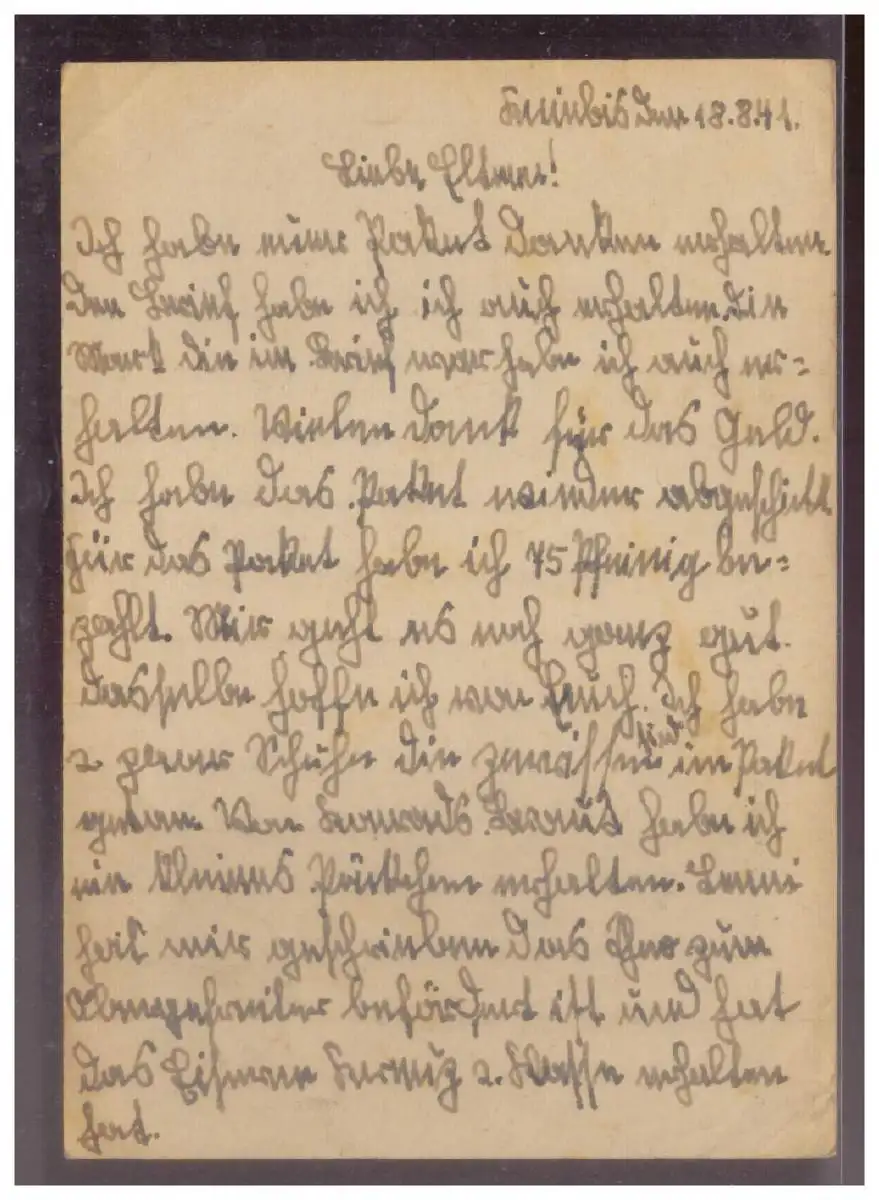 den 18.8.41.
Liebe Eltern!
Ich habe euer Paket danken erhalten
Den Brief habe ich ich auch erhalten. Die
Mark die im Brief war habe ich auch er=
halten. Vielen Dank für das Geld.
Ich habe das Paket wieder abgeschickt
Für das Paket habe ich 75 Pfeinig be=
zahlt. Mir geht es noch ganz gut.
Dasselbe hoffe ich von Euch. Ich habe
2 paar Schuhe die sind im Paket
getan. Von Konrads Braut habe ich
ein kleines Päckchen erhalten. Leni
hat mir geschrieben das zum
Obergefreiter befördert ist und hat
das Eiserne Kreuz 2. Klasse erhalten
hat.